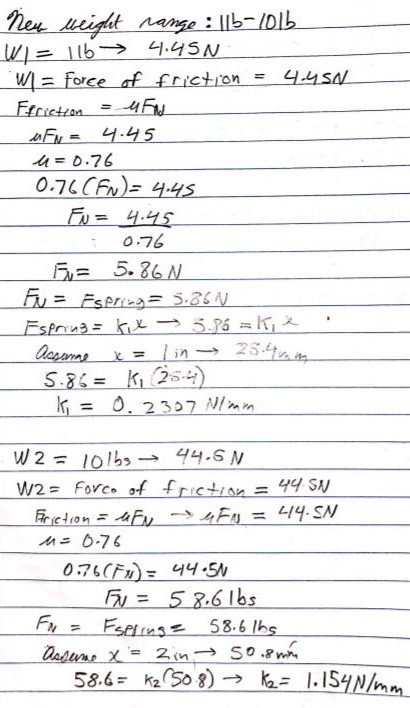 New weight range: 1lb-10lb
W1 = 1lb → 4.45N
W1 = Force of friction = 4.45N
Ffriction = μFN
μFN = 4.45
μ = 0.76
0.76(FN) = 4.45
FN = 4.45
0.76
FN = 5.86N
FN = Fspring = 5.86N
Fspring = K1x → 5.86 = K1x
Assume x = 1in → 25.4mm
5.86 = K1(25.4)
K1 = 0.2307 N/mm
W2 = 10lbs → 44.5N
W2 = Force of friction = 44.5N
Friction = μFN → μFN = 44.5N
μ = 0.76
0.76(FN) = 44.5N
FN = 58.6lbs
FN = Fspring = 58.6lbs
Assume x = 2in → 50.8mm
58.6 = K2(50.8) → K2 = 1.154N/mm